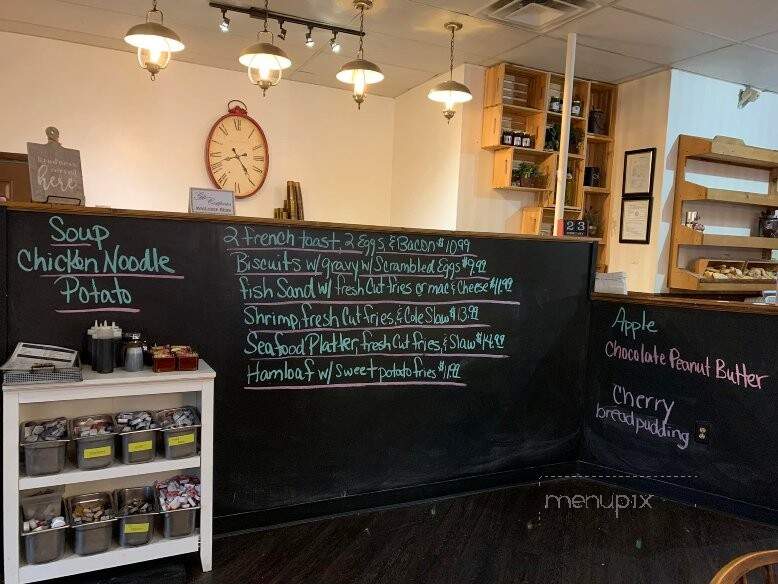 Soup
Chicken Noodle
Potato
2 french toast, 2 Eggs, & Bacon $10.99
Biscuits w/ gravy w/ Scrambled Eggs $9.99
fish Sand w/ fresh Cut fries or mac & Cheese $11.99
Shrimp, fresh Cut fries, & Cole Slaw $13.99
Seafood Platter, fresh Cut fries, & Slaw $14.99
Hamloaf w/ sweet potato fries $11.99
Apple
Chocolate Peanut Butter
Cherry
bread pudding
here
23
menupix